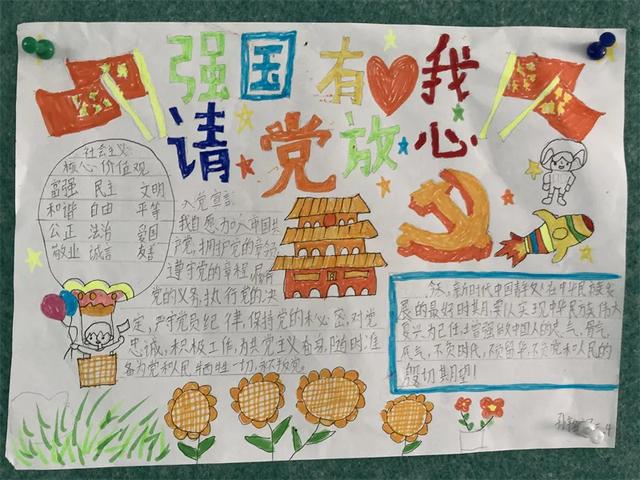 强国有我
请党放心
社会主义
核心价值观
富强 民主 文明
和谐 自由 平等
公正 法治 爱国
敬业 诚信 友善
入党宣言
我自愿加入中国共
产党,拥护党的
遵守党的章程,履行
党的义务,执行党的决
定,严守党员纪律,保持党的秘密,对党
忠诚,积极工作,为共产主义奋身,随时准
备为党和人民牺牲一切,永不叛党。
今天,新时代中国青年人在中华民族发
展的最好时期,要以实现中华民族伟大
复兴为己任,增强做中国人的志气、骨气、
底气,不负时代,不负韶华,不负党和人民的
殷切期望!